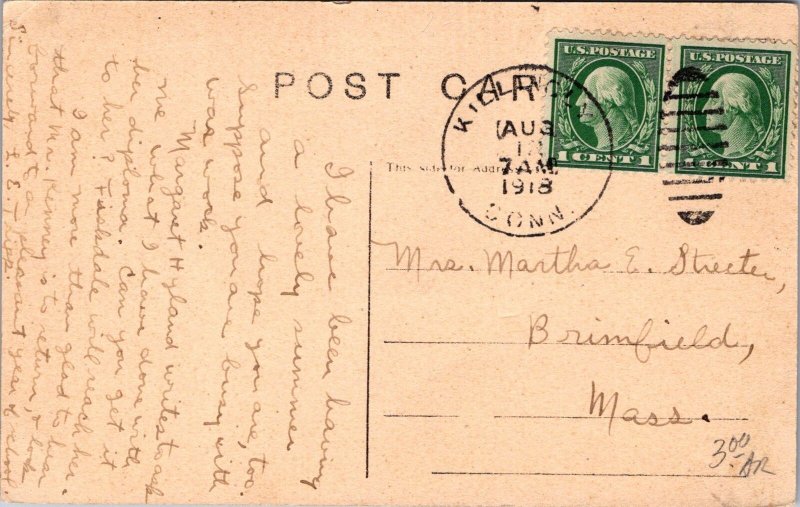 POST CARD
This side for Address
U.S. POSTAGE
1 CENT 1
U.S. POSTAGE
CENT 1
KILLINGLY
AUG
7 AM
1918
CONN.
Mrs. Martha E. Streeter,
Brimfield,
Mass.
3.00
AR
I have been having
a lovely summer
and hope you are, too.
Suppose you are busy with
war work.
Margaret Hyland writes to ask
me what I have done with
her diploma. Can you get it
to her? Fiskdale will reach her.
I am more than glad to hear
that Mr. Kenney is to return, & look
forward to a pleasant year of school
Sincerely L. E.